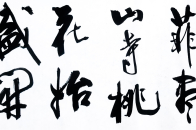 菲盡
山寺桃
花始
盛開